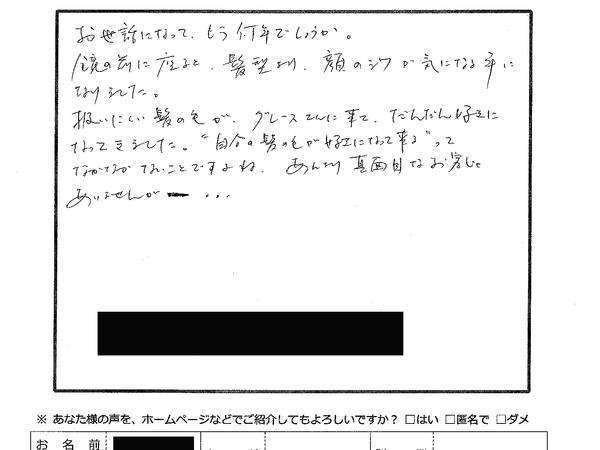 お世話になって、もう何年でしょうか。
鏡の前に座ると、髪型より、顔のシワが気になる年に
なりました。
扱いにくい髪の毛が、グレースさんに来て、だんだん好きに
なってきました。“自分の髪の毛が好きになって来る”って
なかなかないことですよね。あんまり真面目なお客じゃ
ありませんが ー ...
※ あなた様の声を、ホームページなどでご紹介してもよろしいですか？ □はい □匿名で □ダメ
お 名 前